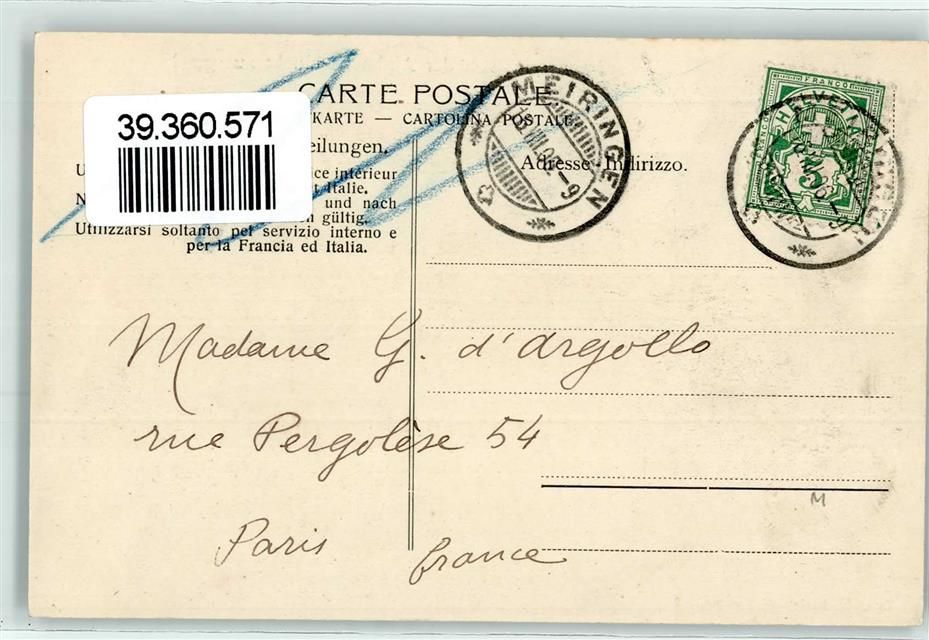 CARTE POSTALE
KARTE — CARTOLINA POSTALE
39.360.571
eilungen.
Adresse-Indirizzo.
ice intérieur
t Italie.
und nach
n gültig.
Utilizzarsi soltanto pel servizio interno e
per la Francia ed Italia.
MEIRINGEN
FRANCO
HELVETIA
5
Madame G. d'Argollo
rue Pergolèse 54
M
Paris France